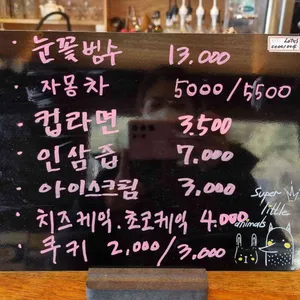 · 눈꽃빙수 13.000
· 자몽차 5000/5500
· 컵라면 3.500
· 인삼즙 7.000
· 아이스크림 3.000
· 치즈케익.초코케익 4.000
· 쿠키 2,000/3.000
Super
little
animals
Lotus